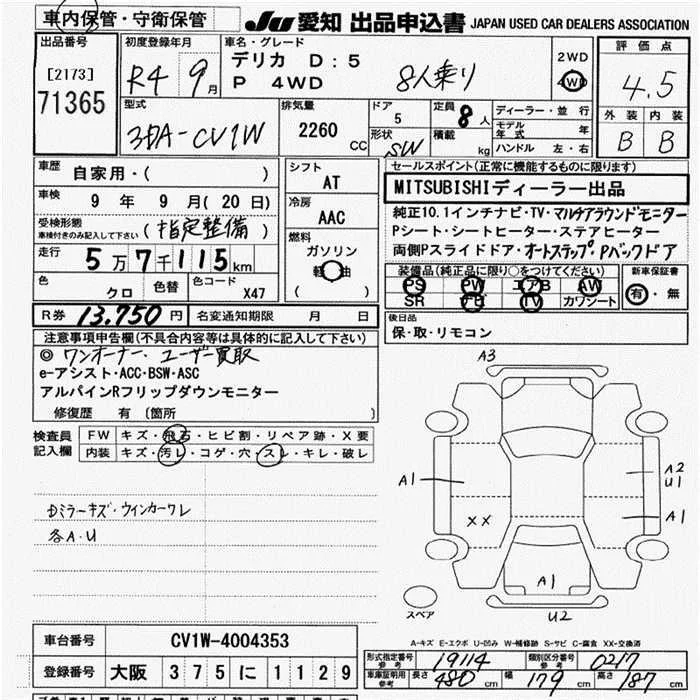 車内保管・守衛保管 JU 愛知 出品申込書 JAPAN USED CAR DEALERS ASSOCIATION
出品番号
[2173]
71365
初度登録年月
R4 9月
車名・グレード
デリカ D:5
P 4WD 8人乗り
2WD
4WD
評価点
4.5
外装 内装
B B
型式
3DA-CV1W
排気量
2260 CC
ドア
5
形状
SW
定員
8人
積載
kg
ディーラー・並行
モデル年式 年
ハンドル 左・右
車歴
自家用・( )
車検
9年 9月(20日)
受検形態
車検付きのみ記入して下さい
(指定整備)
走行
5万7千115km
色
クロ
色替
色コード
X47
シフト
AT
冷房
AAC
燃料
ガソリン
軽油
( )
セールスポイント(正常に機能するものに限ります)
MITSUBISHIディーラー出品
純正10.1インチナビ・TV・マルチアラウンドモニター
Pシート・シートヒーター・ステアヒーター
両側Pスライドドア・オートステップ・Pバックドア
装備品(純正品に限り○をつけてください)
PS PW エアB AW
SR ナビ TV カワシート
新車保証書
有・無
R券 13,750円
名変通知期限 月 日
後日品
保・取・リモコン
注意事項申告欄(不具合内容等は具体的に記入して下さい)
◎ ワンオーナー、ユーザー買取
e-アシスト・ACC・BSW・ASC
アルパインRフリップダウンモニター
修復歴 有〔箇所 〕
検査員記入欄
FW キズ・飛石・ヒビ割・リペア跡・X要
内装 キズ・汚レ・コゲ・穴・スレ・キレ・破レ
Dミラーキズ・ウィンカーワレ
各A・U
A3
A1
A2
U1
A1
XX
A1
U2
スペア
A-キズ E-エクボ U-凹み W-補修跡 S-サビ C-腐食 XX-交換済
車台番号 CV1W-4004353
登録番号 大阪 375 に 1129
形式指定番号 参考 19114
類別区分番号 参考 0217
車庫証明用 参考 長さ 480cm 幅 179cm 高さ 187cm